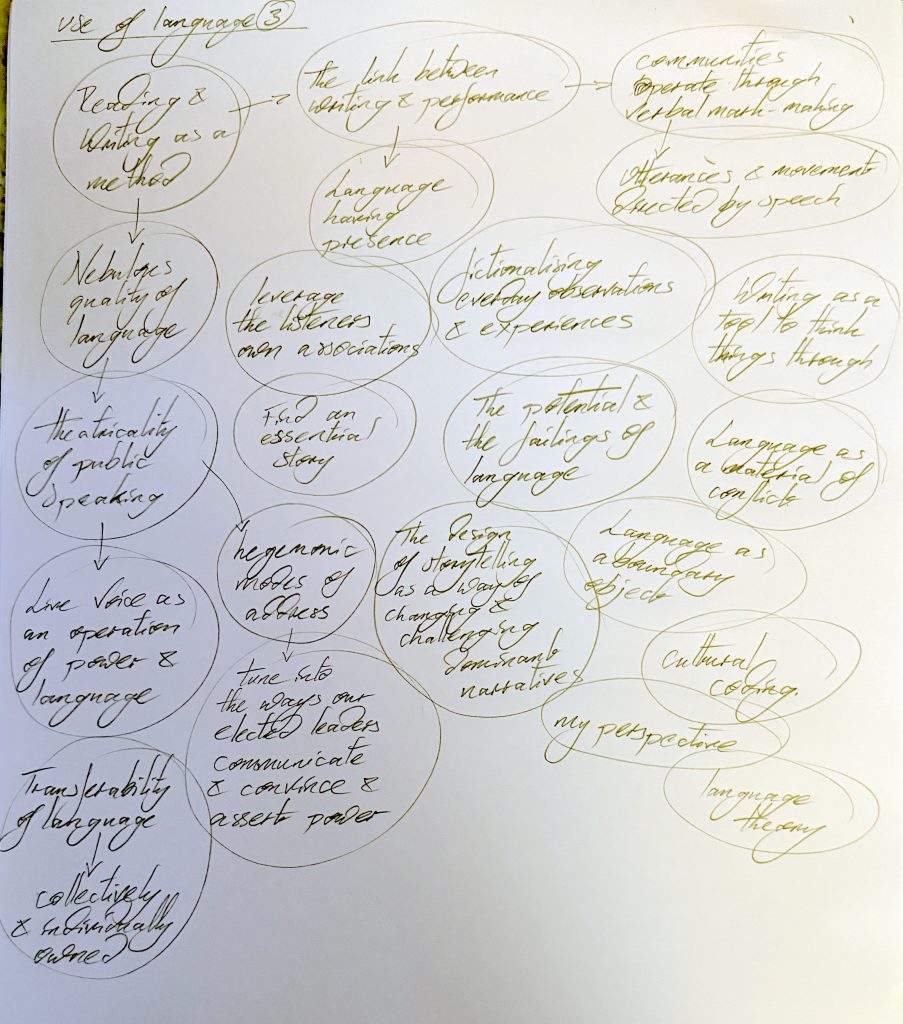 use of language 3
Reading &
writing as a
method
the link between
writing & performance
communities
operate through
verbal mark-making
Language
having
presence
utterances & movement
directed by speech
Nebulous
quality of
language
leverage
the listeners
own associations
fictionalising
everyday observations
& experiences
Writing as a
tool to think
things through
theatricality
of public
speaking
Find an
essential
story
The potential &
the failings of
language
Language as
a material of
conflict
Live Voice as
an operation
of power &
language
hegemonic
modes of
address
The design
of storytelling
as a way of
changing &
challenging
dominant
narratives
Language as
a boundary
object
cultural
coding.
Tune into
the ways our
elected leaders
communicate
& convince &
assert power
my perspective
language
theory
Transferability
of language
collectively
& individually
owned